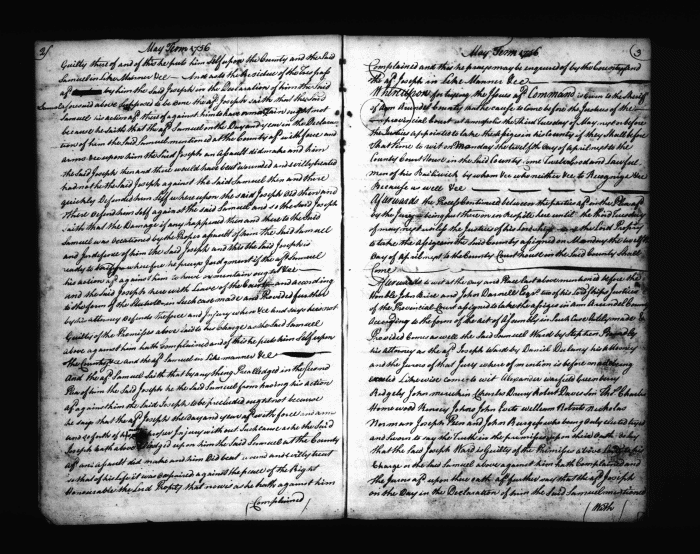 2
May Term 1756
Guilty thereof and of this he puts him Self upon the County and the Said
Samuel in Like Manner &ce And as to the residue of the Trespass
afd by him the Said Joseph in the Declaration of him the Said
Samuel foresaid above Supposed to be done the afd Joseph saith that the Said
Samuel his action afd thereof against him to have or maintain ought not
because he saith that the afd Samuel on the Day and year in the Declara
tion of him the Said Samuel mentioned at the County afd with force and
arms &c upon him the Said Joseph an assault did make and him
the Said Joseph then and there would have beat wounded and evilly treated
had not he the Said Joseph against the Said Samuel then and there
quickly Defended him Self whereupon the said Joseph Did then and
There Defend him Self against the said Samuel and so the Said Joseph
saith that the Damage if any happened then and there to the Said
Samuel was occasioned by the Proper assault of him The Said Samuel
and in defence of him the Said Joseph and this the Said Joseph is
ready to wherefore he prays Judgment if the afd Samuel
his action afd against him to have or maintain ought &ce
and the said Joseph here with Leave of the Court and according
to the form of the Statute in Such case made and Provided further
by his attorney Defends the force and Injury when &ce and says he is not
Guilty of the Premisses above laid to his Charge as the Said Samuel
above against him hath Complained and of this he puts him Self upon
the Country &ce and the afd Samuel in Like manner &ce
And the afd Samuel Saith that by any thing Pleaded in the Second
Plea of him the Said Joseph he the Said Samuel from having his action
afd against him the Said Joseph to be precluded ought not because
he says that the afd Joseph the day and year afd with force and arms
and of his own Injury without Such cause as he the Said
Joseph hath above alledged upon him the Said Samuel at the County
afd an assault did make and him Did beat wound and evilly treat
so that of his Life it was despaired against the peace of the Right
Honourable the Lord Propty that now is as he hath against him
(Complained)
May Term 1756
3
Complained and this he prays may be enquired of by the Country And
the afd Joseph in Like Manner &ce
Whereupon for trying the Issue afd Command is given to the Sheriff
of Ann Arundel County that he cause to come before the Justices of the
provincial Court at annapolis the third Tuesday of May next or before
the Justices appointed to take the assizes in his County if they Shall before
that time to wit on Monday the twelfth day of april next to the
County Court House in the Said County come Twelve Good and Lawful
men of his Bailiwick by whom &ce who neither &ce to Recognize &ce
Because as well &ce
Afterwards the Process Continued between the parties afd in the Plea afd
by the Jury being put thereon in Respite here until the third Tuesday
of may next unless the Justices of his Lordship the Lord Propty
to take the assizes in the Said County assigned on Monday the twelfth
Day of april next to the County Court House in the Said County Shall
Come
Afterwards to wit at the day and Place Last above mentioned before the
Honble John Brice and John Darnall Esqrs two of his Lordships Justices
of the Provincial Court assigned to take the assizes in Ann Arundel County
According to the form of the act of Assembly in Such Case lately made &
Provided Came as well the Said Samuel Ward by Stephen Bordley
his attorney as the afd Joseph Ward by Daniel Dulaney his attorney
and the Jurors of that Jury where of mention is before made being
called Likewise come to wit Alexander Warfield Greenberry
Ridgely John Charles Drury Robert Davis Son Thos Charles
Homewood John Ijams William Roberts Nicholas
Norman Joseph Penn and John Burgess who being duly elected tryed
and Sworn to say the Truth in the premisses upon their Oath do say
that the Said Joseph Ward is Guilty of the Premisses above laid to his
Charge as the Said Samuel above against him hath Complained and
the Jurors afd upon their oath afd further say that the afd Joseph
on the Day in the Declaration of him the Said Samuel mentioned
(With)